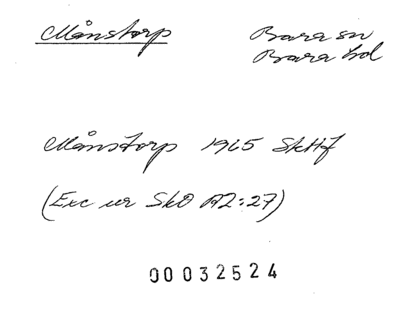 Månstorp
Bara sn
Bara hd
Månstorp 1965 SkHf
(Exc ur SkO A2:27)
00032524